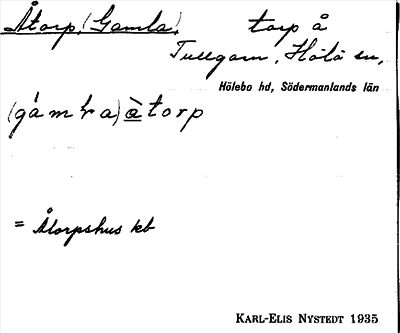 Åtorp, (Gamla) torp å
Tullgarn, Hölö sn,
Hölebo hd, Södermanlands län
(gámꞎa) àtorp
= Åtorpshus kb
KARL-ELIS NYSTEDT 1935